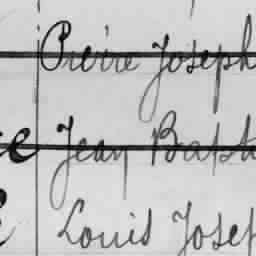 Pierre Joseph
Jean Bapt
Louis Josep